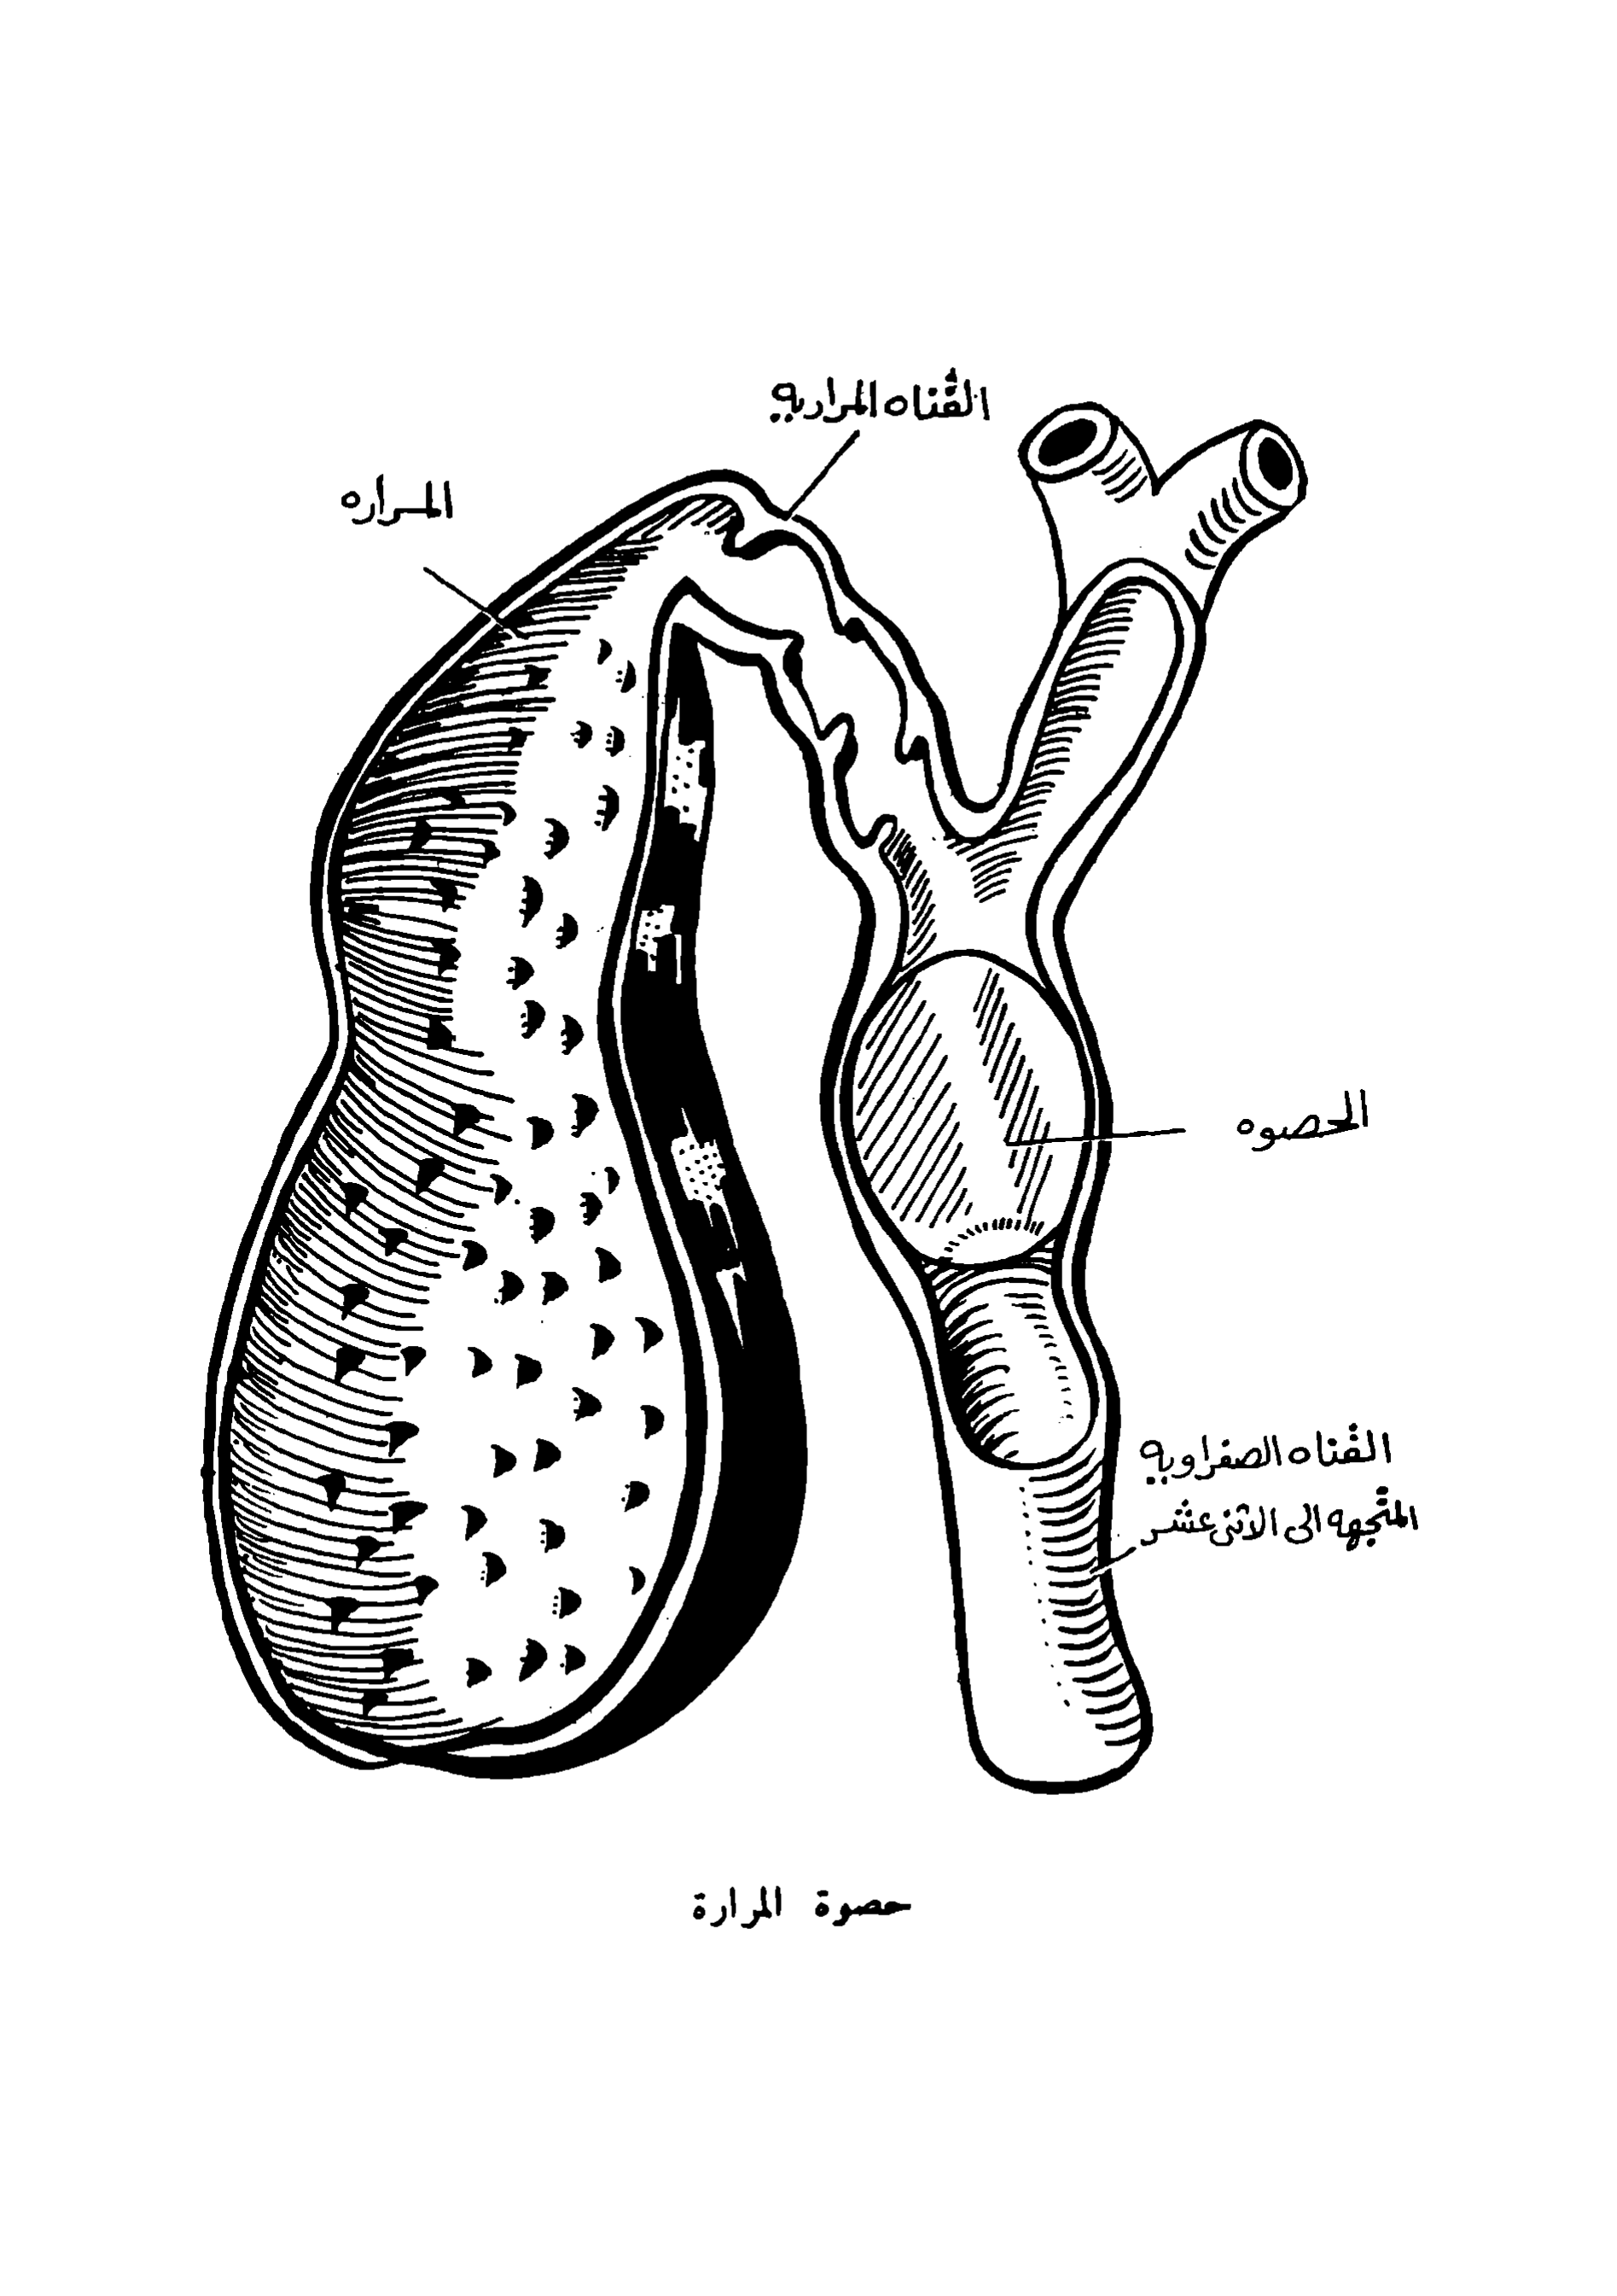 القناه المراريه
المراره
الحصوه
القناه الصفراويه
المتجهه الى الاثنى عشر
حصوة المرارة